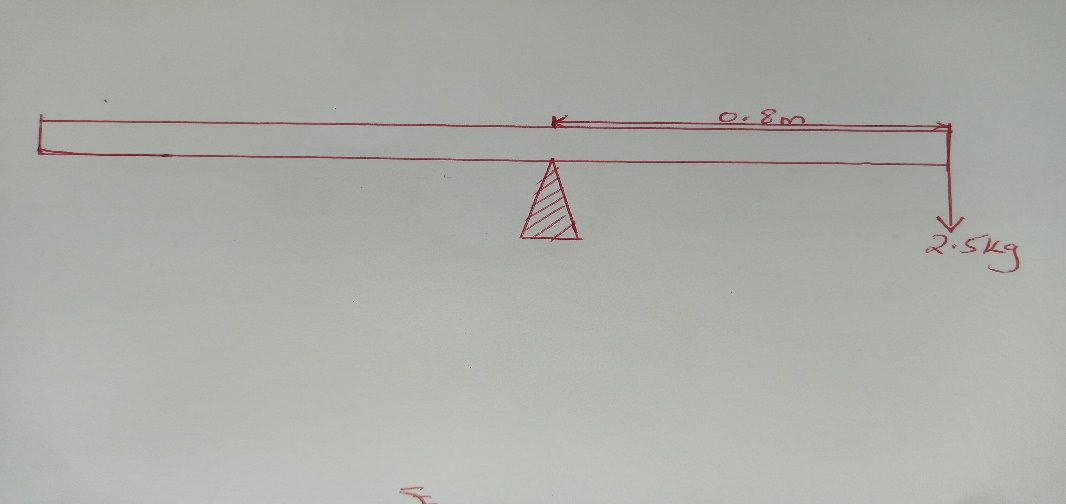 0.8m
2.5kg